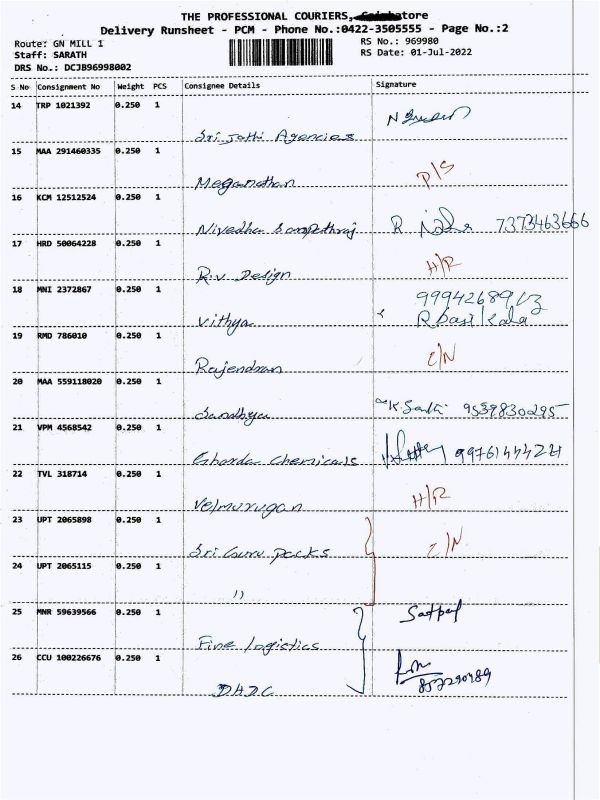 THE PROFESSIONAL COURIERS,
Delivery Runsheet - PCM - Phone No.:0422-3505555 - Page No.:2
Route: GN MILL 1 RS No.: 969980
Staff: SARATH RS Date: 01-Jul-2022
DRS No.: DCJB96998002
S No Consignment No Weight PCS Consignee Details Signature
14 TRP 1021392 0.250 1
Sri Jothi Agencies
15 MAA 291460335 0.250 1
Meganathan P/S
16 KCM 12512524 0.250 1
Nivedha Sampathraj R 7373463666
17 HRD 50064228 0.250 1
R.V. Design H/R
18 MNI 2372867 0.250 1
Vithya
19 RMD 786010 0.250 1
Rajendran C/N
20 MAA 559118020 0.250 1
Sandhya K. 9539830295
21 VPM 4568542 0.250 1
Gharda Chemicals
22 TVL 318714 0.250 1
Velmurugan H/R
23 UPT 2065898 0.250 1
Sri Guru Packs C/N
24 UPT 2065115 0.250 1
"
25 MNR 59639566 0.250 1
Fine Logistics
26 CCU 100226676 0.250 1